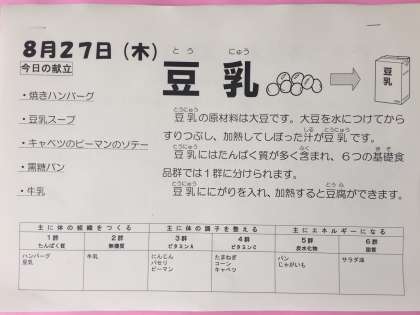 8月27日（木）
今日の献立
・焼きハンバーグ
・豆乳スープ
・キャベツのピーマンのソテー
・黒糖パン
・牛乳
とう にゅう
豆乳
豆乳
豆乳の原材料は大豆です。大豆を水につけてから
すりつぶし、加熱してしぼった汁が豆乳です。
豆乳にはたんぱく質が多く含まれ、６つの基礎食
品群では１群に分けられます。
豆乳ににがりを入れ、加熱すると豆腐ができます。
主に体の組織をつくる 主に体の調子を整える 主にエネルギーになる
1群 2群 3群 4群 5群 6群
たんぱく質 無機質 ビタミンA ビタミンC 炭水化物 脂質
ハンバーグ 牛乳 にんじん たまねぎ パン サラダ油
豆乳 パセリ コーン じゃがいも
ピーマン キャベツ